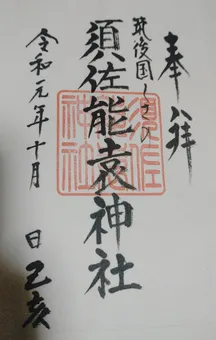 奉拝
筑後国
須佐能袁神社
令和元年十月 日 己亥
須佐神社